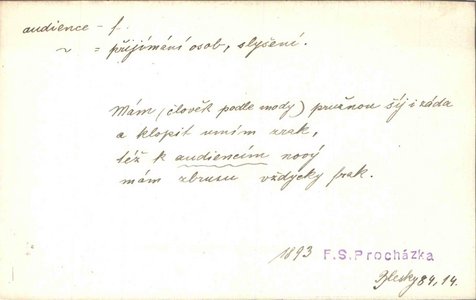 audience - f.
~ = přijímání osob, slyšení.
Mám (člověk podle mody) pružnou šíj i záda
a klopit umím zrak,
též k audiencím nový
mám zbrusu vždycky frak.
1893 F.S.Procházka
Blesky 84, 14.